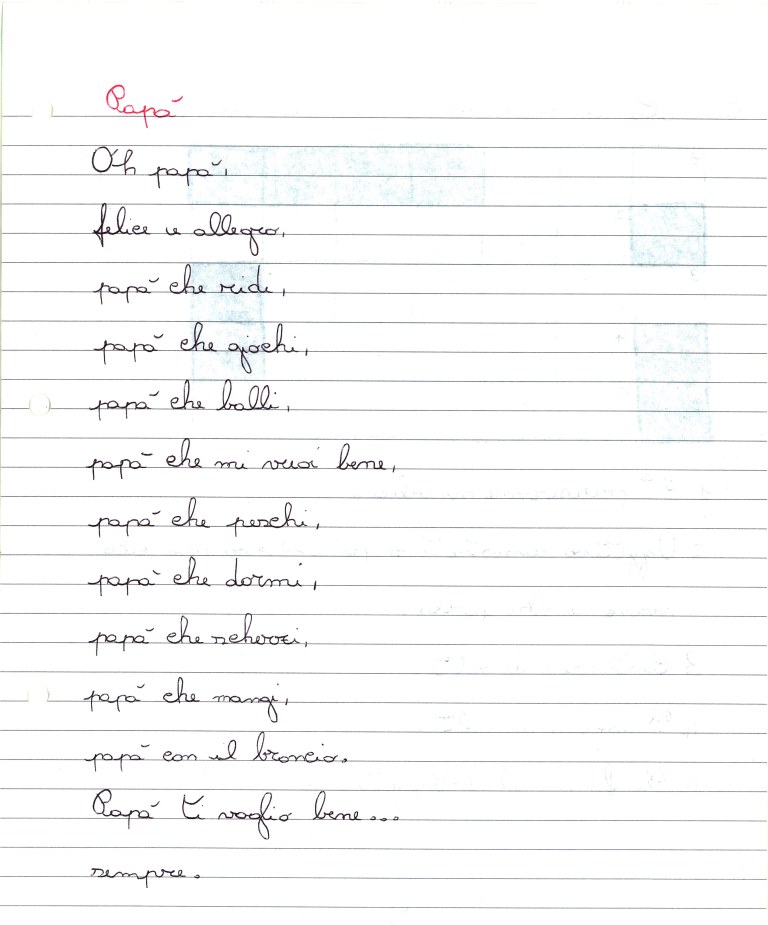 Papà
Oh papà,
felice e allegro,
papà che ridi,
papà che giochi,
papà che balli,
papà che mi vuoi bene,
papà che peschi,
papà che dormi,
papà che scherzi,
papà che mangi,
papà con il broncio.
Papà ti voglio bene...
sempre.